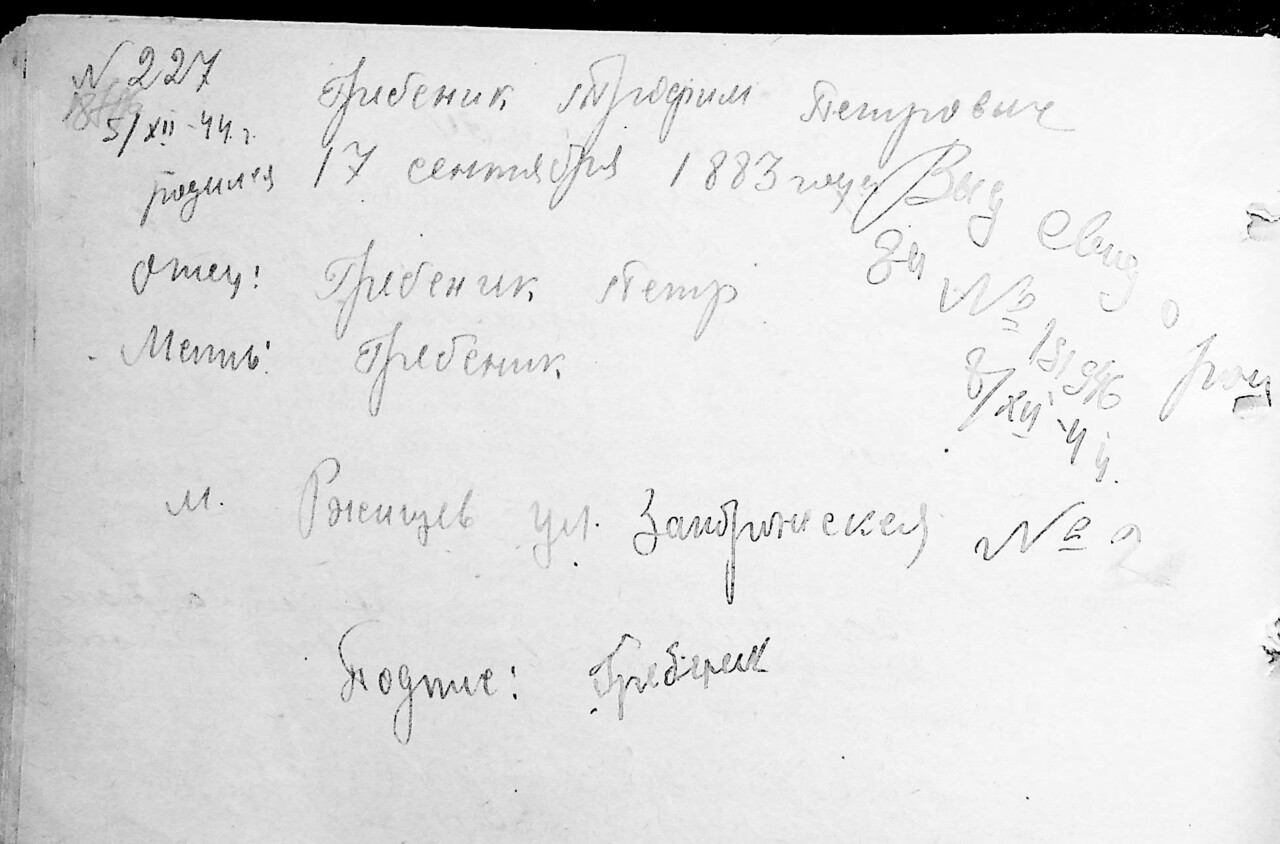 № 227
5/XII-44 г.
Гребеник Трофим Петрович
родился 17 сентября 1883 года
Выд свид о рож
за №
8/XII-44.
Отец: Гребеник Петр
Мать: Гребеник
м. Ржищев ул. № 2
Подпис: Гребеник